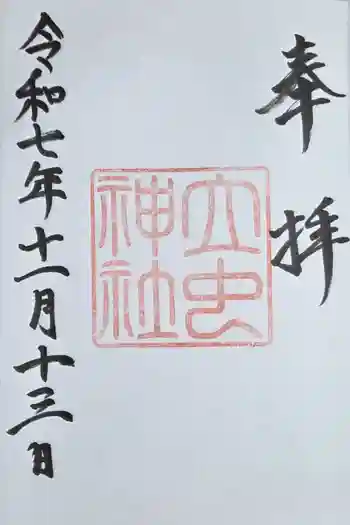 奉拝
立虫
神社
令和七年十一月十三日